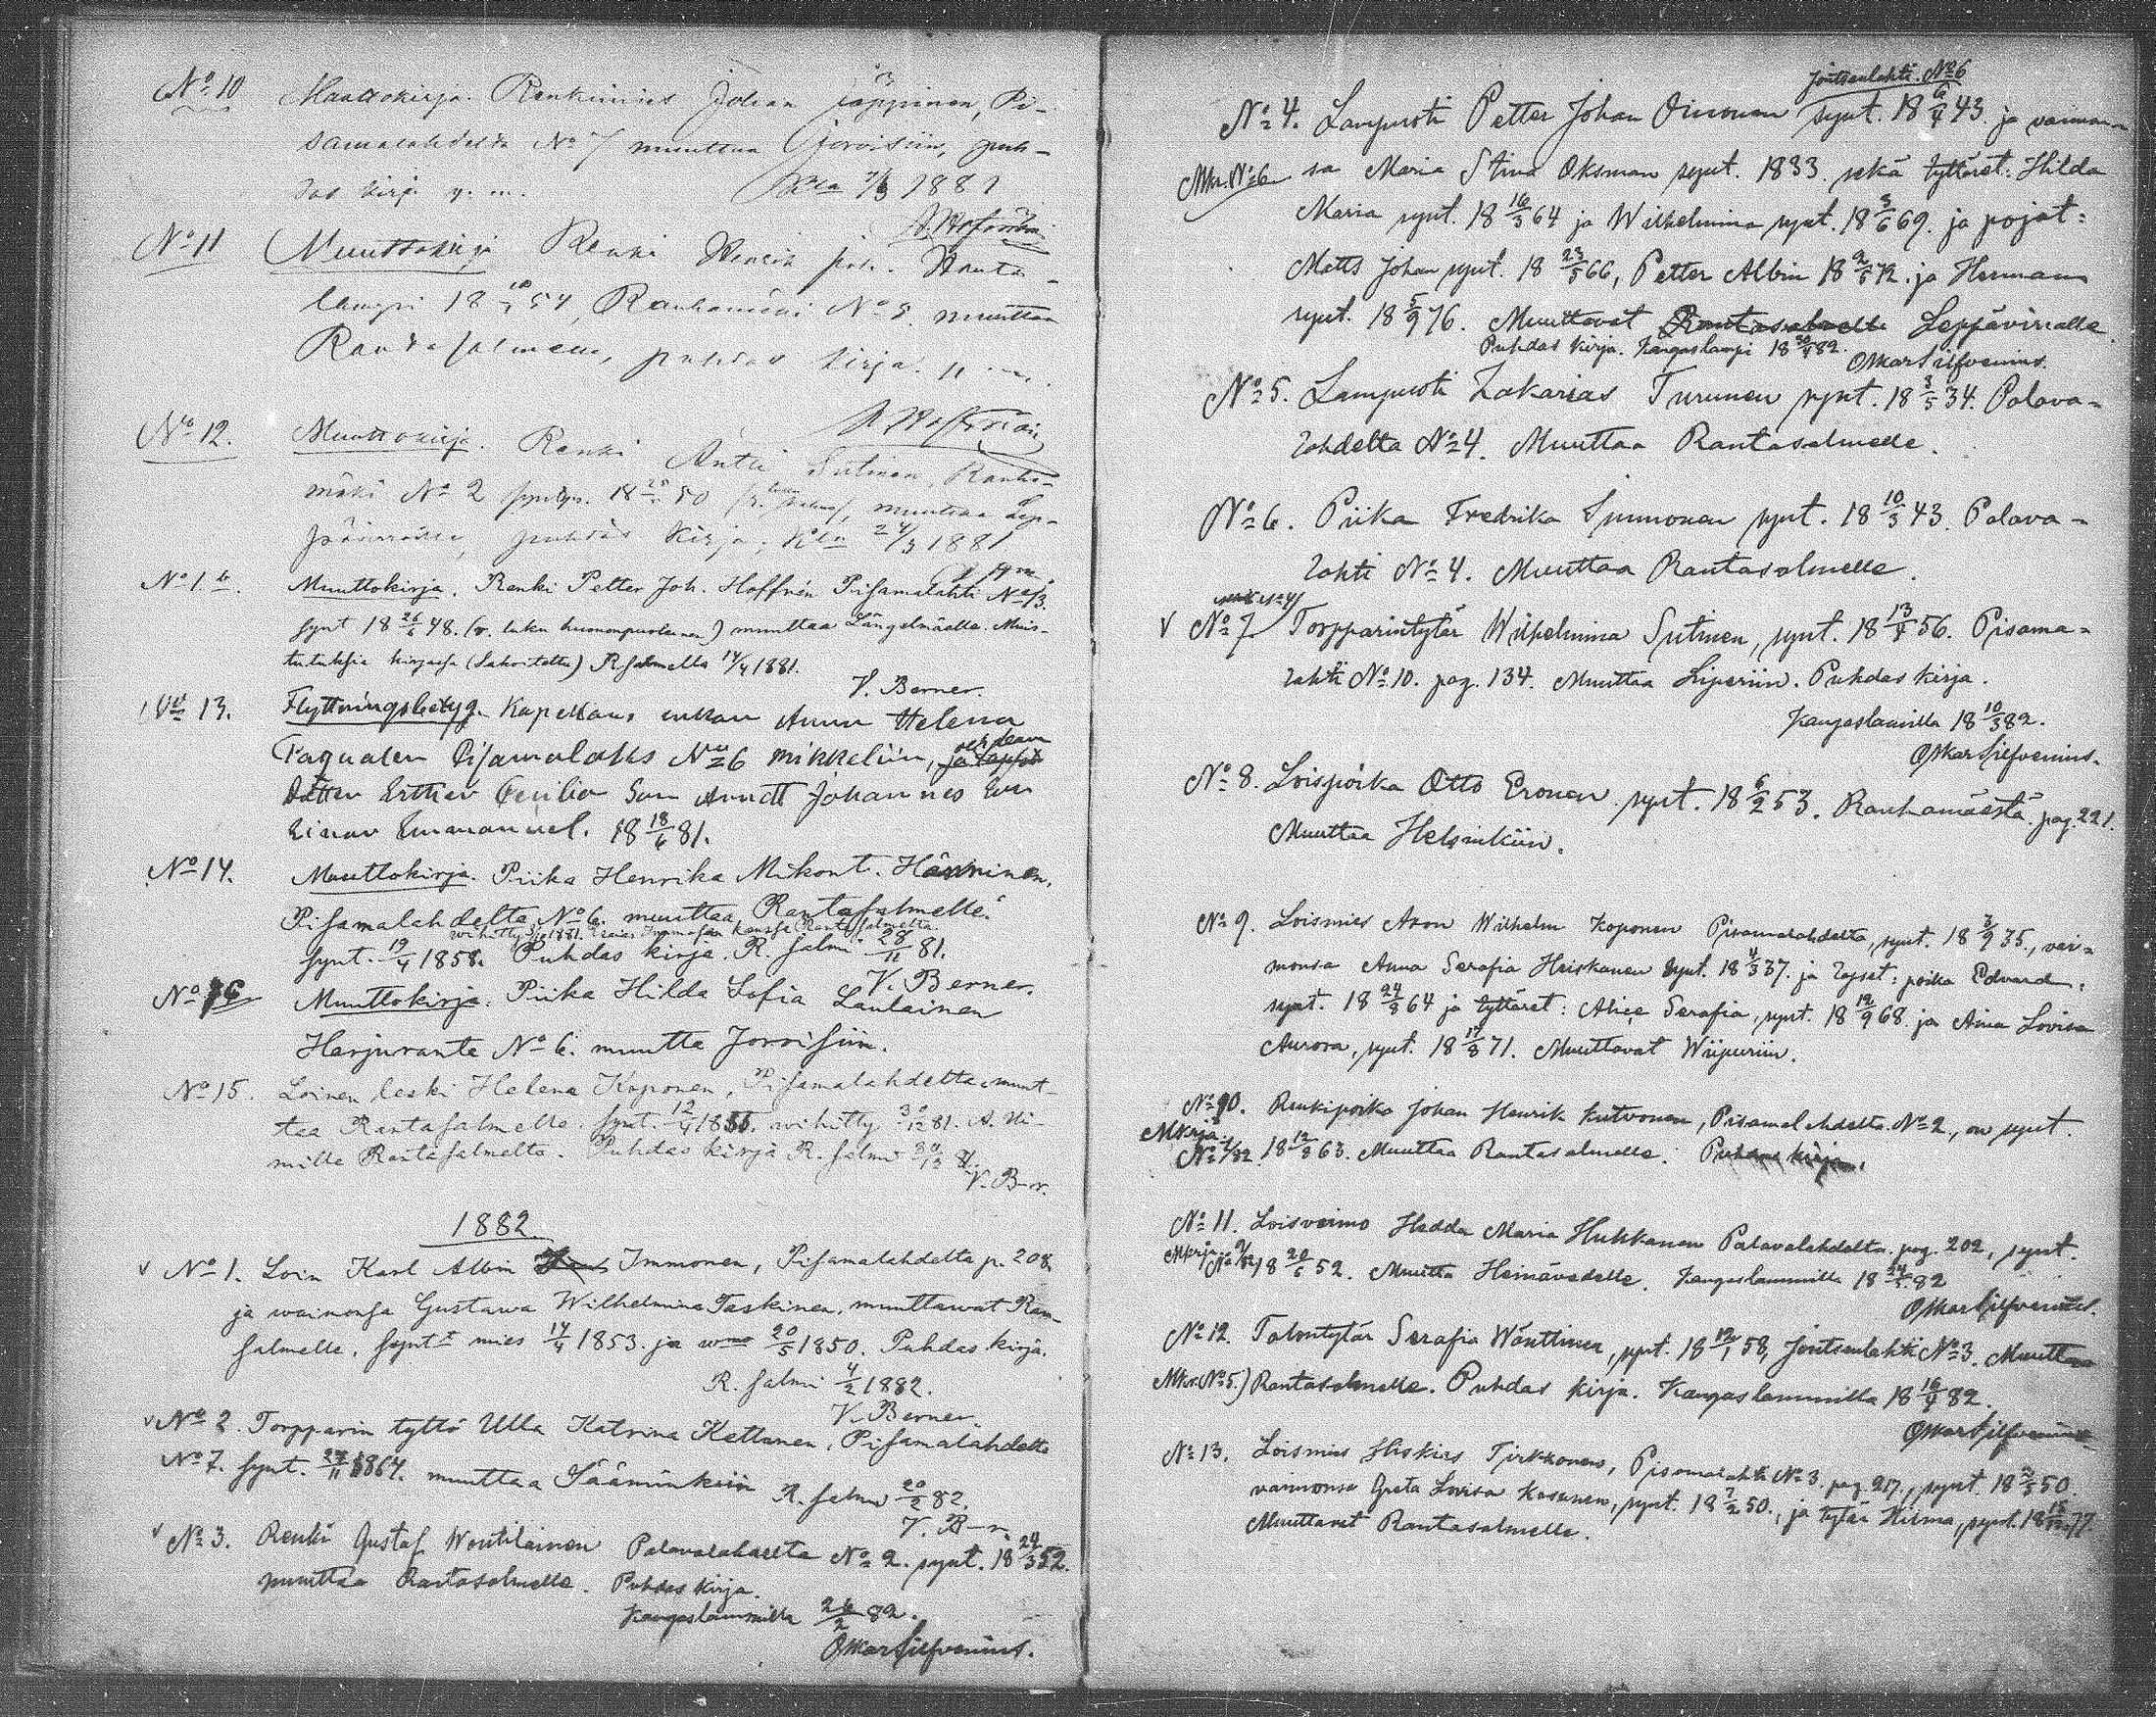 No 10 Muuttokirja. Renkimies Johan Läppinen, Pi-
samalahdelta No 7 muuttaa Joroisiin, puh-
das kirja y. m. 1881
No 11 Muuttokirja Renki Henrik Joh. Hauta-
lampi 18 54, Rauhamäki No 8. muuttaa
Rantasalmelle, puhdas kirja
No 12. Muuttokirja. Renki Antti Sutinen, Rauha-
mäki No 2 18 50 muuttaa Lep-
pävirralle, puhdas kirja; 24/3 1881.
No 1.b. Muuttokirja. Renki Petter Joh. Hoffrén Pisamalahti No 13.
synt 18 26/6 48. (v. luku huononpuoleinen) muuttaa Längelmäelle. Muis-
tutuksia kirjassa (Lahoitettu) R. salmella 14/4 1881.
V. Berner.
No 13. Flyttningsbetyg. Kapellans enkan Anna Helena
Fagualen Pisamalahti No 6 Mikkeliin,
Dotter Esther Cecilia Son Arndt Johannes
Einar Emmanuel. 18 18/6 81.
No 14. Muuttokirja. Piika Henrika Mikont. Hänninen.
Pisamalahdelta No 6. muuttaa Rantasalmelle.
synt. 19/4 1858. Puhdas kirja. R. salmi 28/11 81.
V. Berner.
No 16 Muuttokirja. Piika Hilda Sofia Laulainen
Harjuranta No 6. muutta Joroisiin.
No 15. Loinen leski Helena Koponen, Pisamalahdelta muut-
taa Rantasalmelle. synt. 12/4 18 wihitty 30/12 81. A. Ni-
mille Rantasalmelta. Puhdas kirja R. salmi 30/12 81.
V. B-r.
1882
No 1. Loin Karl Albin Immonen, Pisamalahdelta p. 208.
ja waimonsa Gustawa Wilhelmina Taskinen, muuttawat Ran-
salmelle, synt mies 14/4 1853. ja wmo 20/5 1850. Puhdas kirja.
R. salmi 4/2 1882.
V. Berner.
No 2. Torpparin tyttö Ulla Katrina Kettunen, Pisamalahdelta
No 7. synt. 24/11 1864. muuttaa Sääminkiin R. salmi 20/2 82.
V. B-r.
No 3. Renki Gustaf Woutilainen Palavalahdelta No 2. synt. 18 24/3 52.
muuttaa Rantasalmelle. Puhdas kirja.
Kangaslammilla 26/2 82.
Oskar Silfvenius.
Jontsanlahti. No 6
No 4. Lampuoti Petter Johan Oinonen synt. 18 6/4 43. ja vaimon-
Mkr. No 6 sa Maria Stina Oksman synt. 1833. sekä tyttäret: Hilda
Maria synt. 18 16/3 64 ja Wilhelmina synt. 18 3/6 69. ja pojat:
Matts Johan synt. 18 23/5 66, Petter Albin 18 2/5 72. ja Herman
synt. 18 5/9 76. Muuttavat Rantasalmelle Leppävirralle
Puhdas kirja. Kangaslampi 18 82.
Oskar Silfvenius.
No 5. Lampuoti Zakarias Turunen synt. 18 3/5 34. Palava-
lahdelta No 4. Muuttaa Rantasalmelle.
No 6. Piika Fredrika Immonen synt. 18 10/3 43. Palava-
lahti No 4. Muuttaa Rantasalmelle.
No 7 Torpparintytär Wilhelmina Sutinen, synt. 18 13/4 56. Pisama-
lahti No 10. pag. 134. Muuttaa Liperiin. Puhdas kirja.
Kangaslammilla 18 10/3 82.
Oskar Silfvenius.
No 8. Loispoika Otto Eronen synt. 18 6/2 53. Rauhamäestä pag. 221.
Muuttaa Helsinkiin.
No 9. Loismies Aron Wilhelm Koponen Pisamalahdelta, synt. 18 3/9 35., vai-
monsa Anna Serafia Heiskanen synt. 18 4/3 37. ja lapset: poika Edvard,
synt. 18 24/8 64 ja tyttäret: Alice Serafia, synt. 18 12/9 68. ja Aina Lovisa
Aurora, synt. 18 17/8 71. Muuttavat Wiipuriin.
No 10. Renkipoika Johan Henrik Kutvonen, Pisamalahdelta No 2, on synt.
Mkrja No 1/82 18 12/8 63. Muuttaa Rantasalmelle. Puhdas kirja.
No 11. Loisvaimo Hedda Maria Hukkanen Palavalahdelta pag. 202, synt.
18 20/6 52. Muutta Heinävedelle. Kangaslammilla 18 82
Oskar Silfvenius.
No 12. Talontytär Serafia Wänttinen, synt. 18 12/1 58, Jontsanlahti No 3. Muuttaa
Mkr. No 5.) Rantasalmelle. Puhdas kirja. Kangaslammilla 18 16/4 82.
Oskar Silfvenius
No 13. Loismies Hiskias Tirkkonen, Pisamalahti No 3. pag. 217., synt. 18 50.
vaimonsa Greta Lovisa Kosunen, synt. 18 7/2 50., ja tytär Hilma, synt. 18 77.
Muuttavat Rantasalmelle.